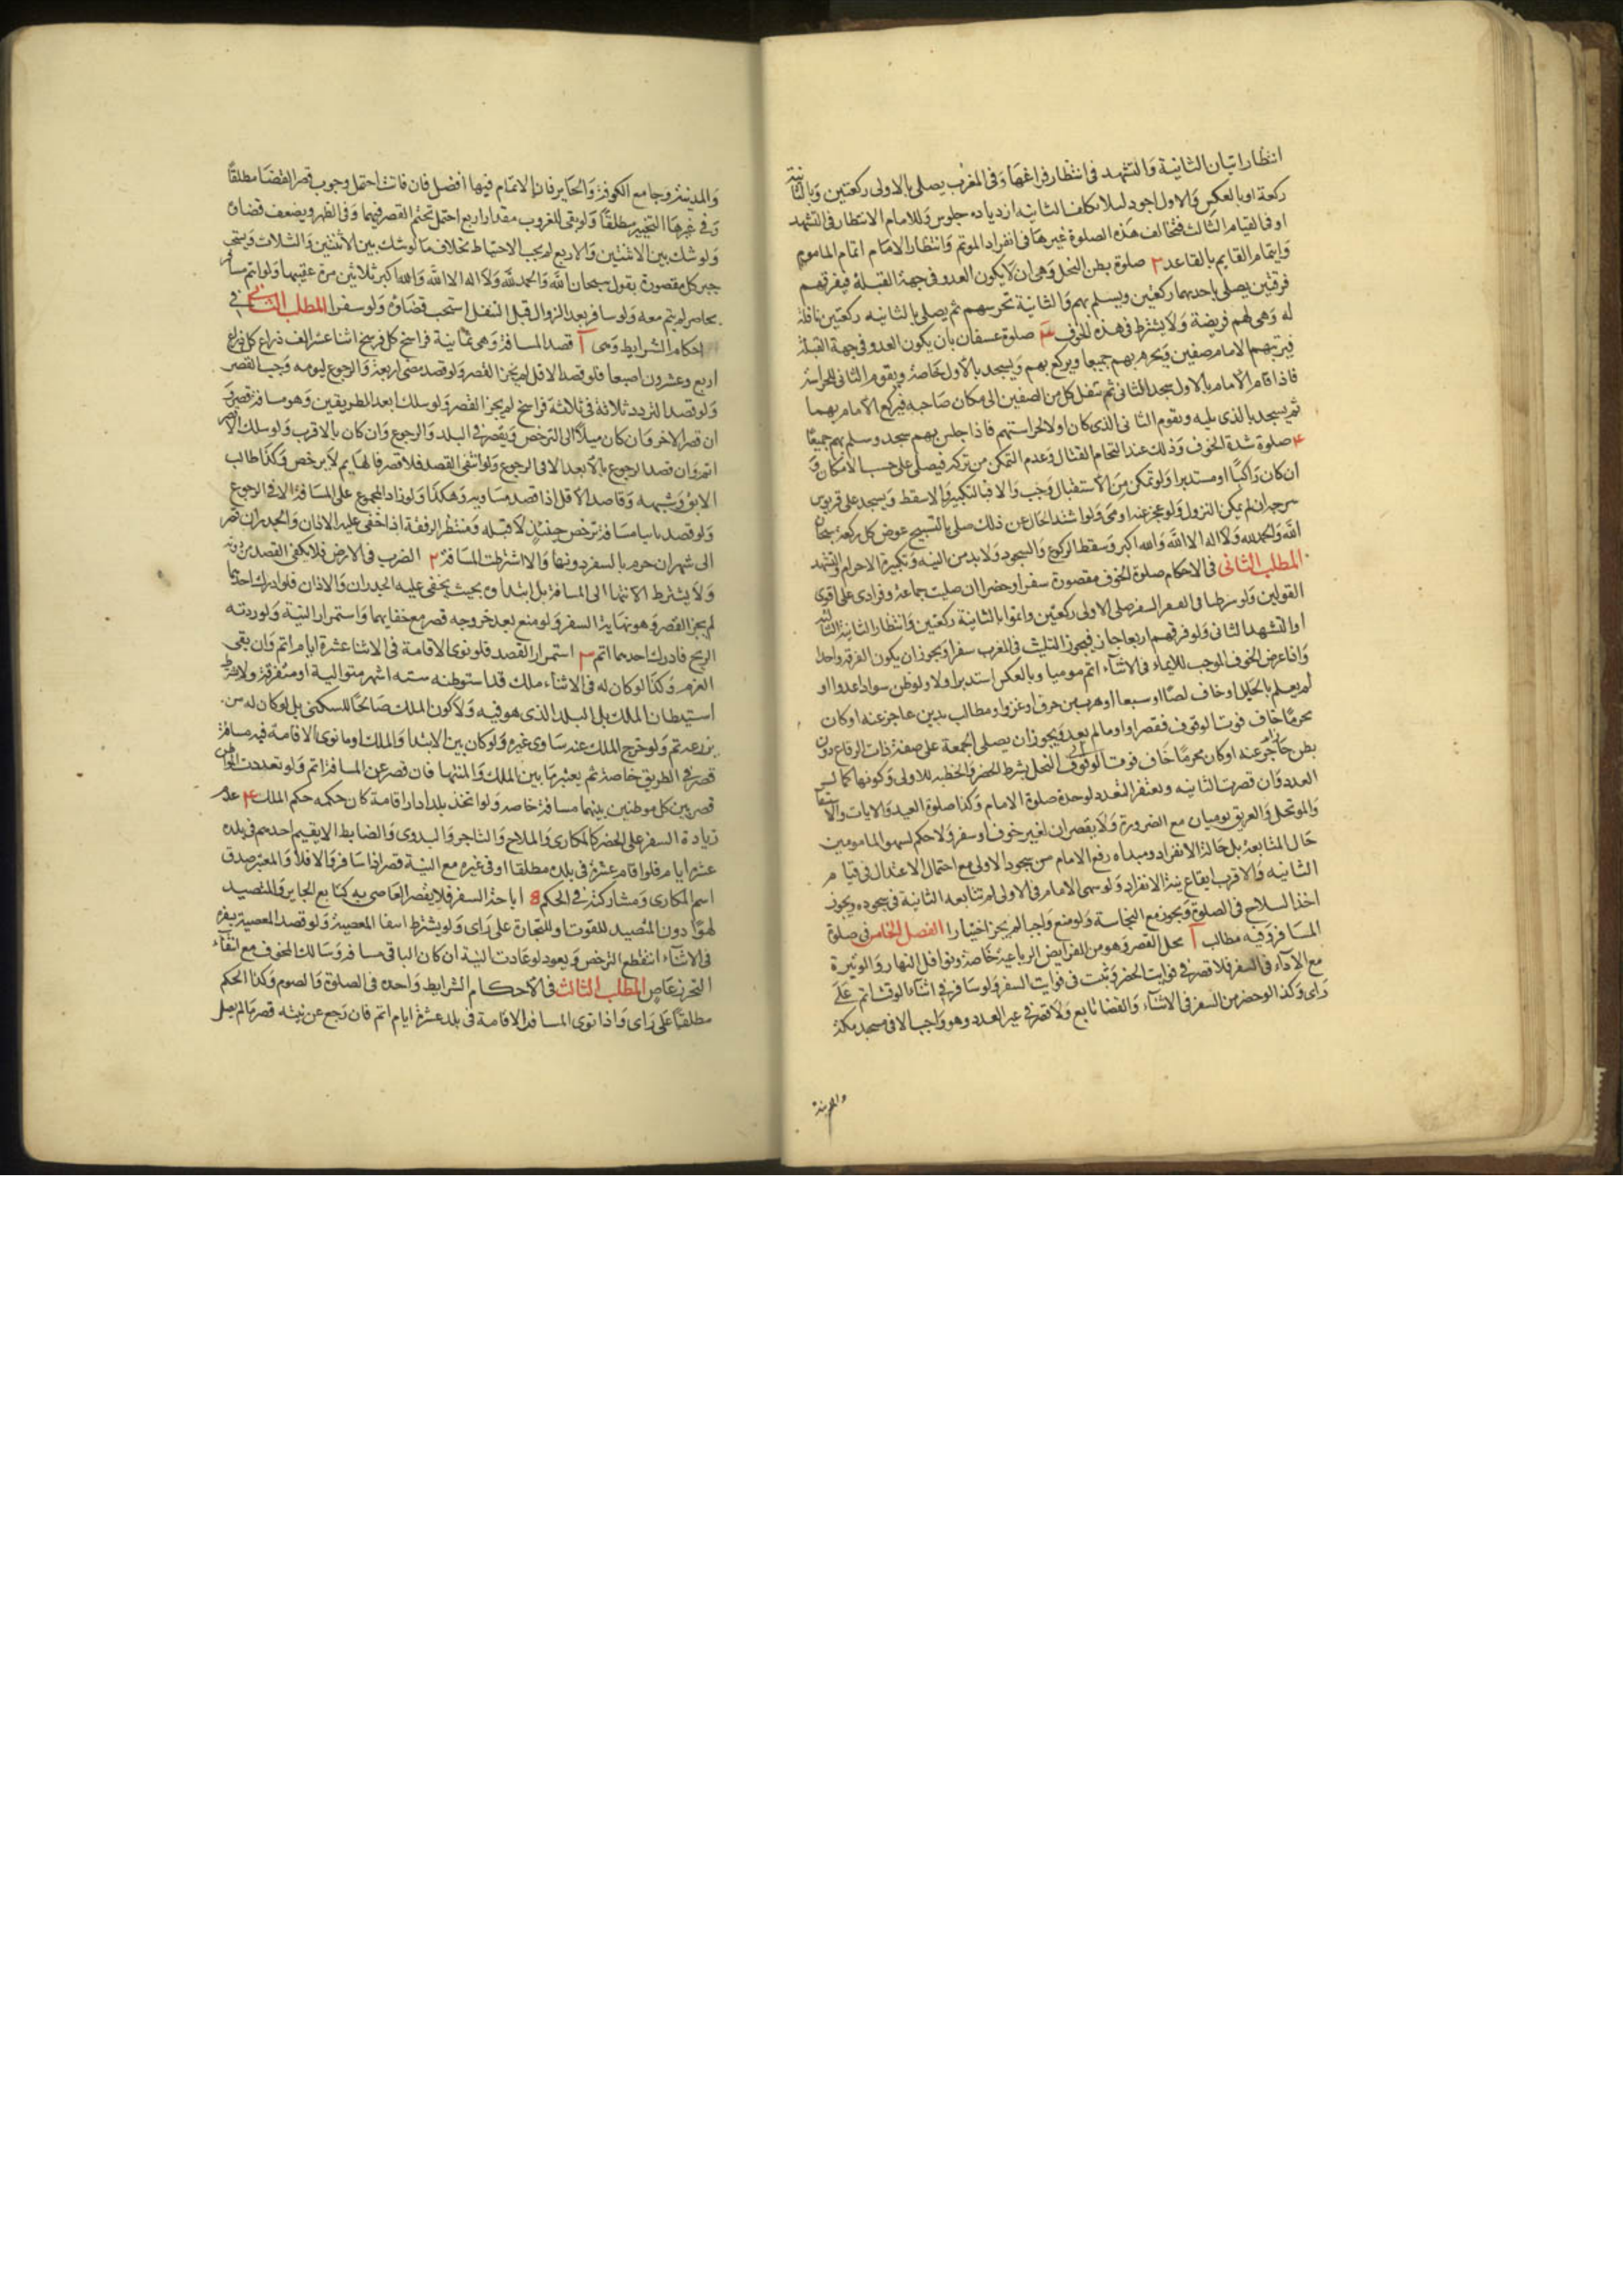 انتظار اتيان الثانية والتشهد فى انتظار فراغها وفى المغرب يصلى بالاولى ركعتين وبالثانية
ركعة او بالعكس والاول اجود لئلا تكلف الثانيه ازدياده جلوس وللامام الانتظار فى التشهد
او فى القيام الثالث فتخالف هذه الصلوة غيرها فى انفراد الموتم وانتظار الامام اتمام الماموم
وايتمام القايم بالقاعد ٢ صلوة بطن النخل وهى ان لا يكون العدو فى جهة القبلة فيفرقهم
فرقتين يصلى باحديهما ركعتين ويسلم بهم والثانية تحرسهم ثم يصلى بالثانيه ركعتين نافلة
له وهى لهم فريضة ولا يشترط فى هذه الخوف ٣ صلوة عسفان بان يكون العدو فى جهة القبلة
فيرتبهم الامام صفين ويحرم بهم جميعا ويركع بهم ويسجد بالاول خاصة ويقوم الثانى للحراسة
فاذا قام الامام بالاول سجد الثانى ثم تنقل كل من الصفين الى مكان صاحبه فيركع الامام بهما
ثم يسجد بالذى يليه ويقوم الثانى الذى كان اولا لحراستهم فاذا جلس بهم سجد وسلم بهم جميعا
٤ صلوة شدة الخوف وذلك عند التحام القتال وعدم التمكن من تركه فيصلى على حسب الامكان و
ان كان راكبا او مستدبرا ولو تمكن من الاستقبال وجب والا فبالتكبير والا سقط ويسجد على قربوس
سرجه ان لم يمكن النزول ولو عجز عنه اومى ولو اشتد الحال عن ذلك صلى بالتسبيح عوض كل ركعة سبحان
الله والحمد لله ولا اله الا الله والله اكبر وسقط الركوع والسجود ولا بد من النيه وتكبيرة الاحرام والتشهد
المطلب الثانى فى الاحكام صلوة الخوف مقصورة سفرا وحضرا ان صليت جماعة وفرادى على اقوى
القولين ولو شرطنا فى القصر السفر صلى الاولى ركعتين واتموا بالثانية ركعتين وانتظار الثانية الثالثة
او التشهد الثانى ولو فرقهم اربعا جاز فيجوز التثليث فى المغرب سفرا ويجوز ان يكون الفرقة واحدا
واذا عرض الخوف الموجب للايماء فى الاثناء اتم موميا وبالعكس استدبر اولا ولو ظن سوادا عدوا او
لم يعلم بالحيل او خاف لصا او سبعا او هرب من حرق او غرق او مطالب بدين عاجز عنه او كان
محرما خاف فوت الوقوف فقصر او اوما لم يعد ويجوز ان يصلى الجمعة على صفة ذات الرقاع دون
بطن النخل بشرط الحضر والخطبه للاولى وكونها كمال
العدد وان قصرت الثانيه ويغتفر التعدد لوحدة صلوة الامام وكذا صلوة العيد والايات والاستسقا
والموتحل والغريق يوميان مع الضرورة ولا يقصران لغير خوف او سفر ولا حكم لسهو المامومين
حال المتابعة بل حالة الانفراد ومبداه رفع الامام من سجود الاولى مع احتمال الاعتدال فى قيام
الثانيه والاقرب ايقاع نية الانفراد ولو سهى الامام فى الاولى لم تتابعه الثانية فى سجوده ويجوز
اخذ السلاح فى الصلوة ويجوز مع النجاسة ولو منع واجبا لم يجز اختيارا الفصل الخامس فى صلوة
المسافر وفيه مطالب آ محل القصر وهو من الفرايض الرباعية خاصة ونوافل النهار والوتيرة
مع الاداء فى السفر فلا قصر فى فوايت الحضر وثبت فى فوايت السفر ولو سافر فى اثناء الوقت اتم على
راى وكذا لو حضر من السفر فى الاثناء والقضا تابع ولا قصر فى غير العدد وهو واجب الا فى مسجد مكة
والمدينة
والمدينة وجامع الكوفة والحاير فان الاتمام فيها افضل فان فاتت احتمل وجوب قصر القضا مطلقا
وفى غيرها التخيير مطلقا ولو بقى للغروب مقدار اربع احتمل تحتم القصر فيهما وفى الظهر ويضعف قضاؤه
ولو شك بين الاثنتين والاربع لم يجب الاحتياط بخلاف ما لو شك بين الاثنتين والثلاث ويستحب
جبر كل مقصورة بقول سبحان الله والحمد لله ولا اله الا الله والله اكبر ثلاثين مرة عقيبها ولو ايتم مسافر
بحاضر لم يتم معه ولو سافر بعد الزوال قبل التنفل استحب قضاؤه ولو سفرا المطلب الثانى فى
احكام الشرايط وهى آ قصد المسافة وهى ثمانية فراسخ كل فرسخ اثنا عشر الف ذراع كل ذراع
اربع وعشرون اصبعا فلو قصد الاقل لم يجز القصر ولو قصد مضى اربعة والرجوع ليومه وجب القصر
ولو قصد التردد ثلاثة فى ثلاثة فراسخ لم يجز القصر ولو سلك ابعد الطريقين وهو مسافة قصر و
ان قصر الاخر وان كان ميلا الى الترخص ويقصر فى البلد والرجوع وان كان بالاقرب ولو سلك الاقصر
اتم وان قصد الرجوع بالابعد الا فى الرجوع ولو انتفى القصد فلا قصر فالهايم لا يرخص وكذا طالب
الابق وشبهه وقاصد الاقل اذا قصد مساويه وهكذا ولو زاد المجموع على المسافة الا فى الرجوع
ولو قصد ثانيا مسافة ترخص حينئذ لا قبله ومنتظر الرفقة اذا خفى عليه الاذان والجدران قصر
الى شهر ان جزم بالسفر دونها والا اشترطت المسافة ٢ الضرب فى الارض فلا يكفى القصد من دونه
ولا يشترط الانتها الى المسافة بل ابتداوه بحيث يخفى عليه الجدران والاذان فلو ادرك احدهما
لم يجز القصر وهو نهاية السفر ولو منع بعد خروجه قصر مع خفايهما واستمرار النية ولو ردته
الريح فادرك احدهما اتم ٣ استمرار القصد فلو نوى الاقامة فى الاثنا عشرة ايام اتم وان بقى
العزم وكذا لو كان له فى الاثناء ملك قد استوطنه ستة اشهر متوالية او متفرقة ولا يشترط
استيطان الملك بل البلد الذى هو فيه ولا كون الملك صالحا للسكنى بل لو كان له من
مزرعه تم ولو خرج الملك عنه ساوى غيره ولو كان بين الابتدا والملك او ما نوى الاقامة فيه مسافة
قصر فى الطريق خاصة ثم يعتبر ما بين الملك والمنتها فان قصر عن المسافة اتم ولو تعددت المواطن
قصر بين كل موطنين بينهما مسافة خاصة ولو اتخذ بلدا دار اقامة كان حكمه حكم الملك ٤ عدم
زيادة السفر على الحضر كالمكارى والملاح والتاجر والبدوى والضابط الا يقيم احدهم فى بلده
عشرة ايام فلو اقام عشرة فى بلده مطلقا او فى غيره مع النية قصر اذا سافر والا فلا والمعتبر صدق
اسم المكارى ومشاركته فى الحكم ٥ اباحة السفر فلا يقصر العاصى به كتابع الجاير والمتصيد
لهوا دون المتصيد للقوت او للتجارة على راى ولو يشترط انتفا المعصية ولو قصد المعصية بسفره
فى الاثناء انقطع الترخص ويعود لو عادت النية ان كان الباقى مسافة وسالك المخوف مع انتفاء
التحرز عاص المطلب الثالث فى الاحكام الشرايط واحدة فى الصلوة والصوم وكذا الحكم
مطلقا على راى واذا نوى المسافر الاقامة فى بلد عشرة ايام اتم فان رجع عن نيته قصر ما لم يصل